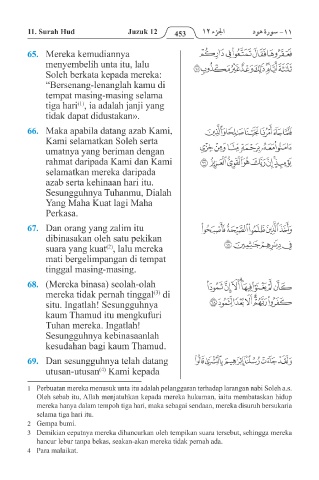 11. Surah Hud Juzuk 12 453 الجزء ١٢ ١١- سورة هود
65. Mereka kemudiannya
menyembelih unta itu, lalu
Soleh berkata kepada mereka:
“Bersenang-lenanglah kamu di
tempat masing-masing selama
tiga hari(1), ia adalah janji yang
tidak dapat didustakan».
فَعَقَرُوهَا فَقَالَ تَمَتَّعُوا۟ فِى دَارِكُمْ
ثَلَٰثَةَ أَيَّامٍ ذَٰلِكَ وَعْدٌ غَيْرُ مَكْذُوبٍ ٦٥
66. Maka apabila datang azab Kami,
Kami selamatkan Soleh serta
umatnya yang beriman dengan
rahmat daripada Kami dan Kami
selamatkan mereka daripada
azab serta kehinaan hari itu.
Sesungguhnya Tuhanmu, Dialah
Yang Maha Kuat lagi Maha
Perkasa.
فَلَمَّا جَآءَ أَمْرُنَا نَجَّيْنَا صَٰلِحًا وَٱلَّذِينَ
ءَامَنُوا۟ مَعَهُۥ بِرَحْمَةٍ مِّنَّا وَمِنْ خِزْىِ
يَوْمِئِذٍ إِنَّ رَبَّكَ هُوَ ٱلْقَوِىُّ ٱلْعَزِيزُ ٦٦
67. Dan orang yang zalim itu
dibinasakan oleh satu pekikan
suara yang kuat(2), lalu mereka
mati bergelimpangan di tempat
tinggal masing-masing.
وَأَخَذَ ٱلَّذِينَ ظَلَمُوا۟ ٱلصَّيْحَةُ فَأَصْبَحُوا۟
فِى دِيَٰرِهِمْ جَٰثِمِينَ ٦٧
68. (Mereka binasa) seolah-olah
mereka tidak pernah tinggal(3) di
situ. Ingatlah! Sesungguhnya
kaum Thamud itu mengkufuri
Tuhan mereka. Ingatlah!
Sesungguhnya kebinasaanlah
kesudahan bagi kaum Thamud.
كَأَن لَّمْ يَغْنَوْا۟ فِيهَآ أَلَآ إِنَّ ثَمُودَا۟
كَفَرُوا۟ رَبَّهُمْ أَلَا بُعْدًا لِّثَمُودَ ٦٨
69. Dan sesungguhnya telah datang
utusan-utusan(4) Kami kepada
وَلَقَدْ جَآءَتْ رُسُلُنَآ إِبْرَٰهِيمَ بِٱلْبُشْرَىٰ قَالُوا۟
1 Perbuatan mereka menusuk unta itu adalah pelanggaran terhadap larangan nabi Soleh a.s.
Oleh sebab itu, Allah menjatuhkan kepada mereka hukuman, iaitu membataskan hidup
mereka hanya dalam tempoh tiga hari, maka sebagai sendaan, mereka disuruh bersukaria
selama tiga hari itu.
2 Gempa bumi.
3 Demikian cepatnya mereka dihancurkan oleh tempikan suara tersebut, sehingga mereka
hancur lebur tanpa bekas, seakan-akan mereka tidak pernah ada.
4 Para malaikat.